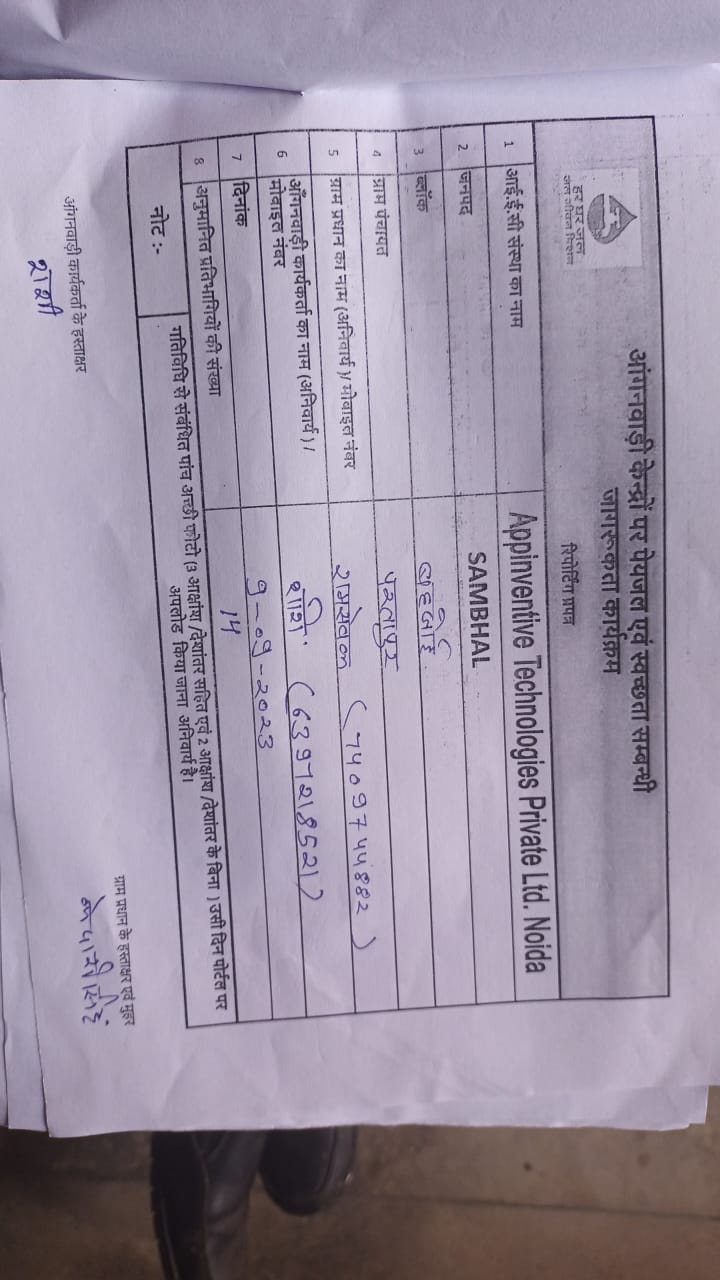 हर घर जल
जल जीवन मिशन
आंगनवाड़ी केन्द्रों पर पेयजल एवं स्वच्छता सम्बन्धी
जागरुकता कार्यक्रम
रिपोर्टिंग प्रपत्र
1 आई.ई.सी संस्था का नाम Appinventive Technologies Private Ltd. Noida
2 जनपद SAMBHAL
3 ब्लॉक बहजोई
4 ग्राम पंचायत परतापुर
5 ग्राम प्रधान का नाम (अनिवार्य )/ मोबाइल नंबर रामसेवक (7409744882)
6 आँगनवाड़ी कार्यकर्ता का नाम (अनिवार्य ) /
मोबाइल नंबर शशि. (6397218521)
7 दिनांक 9-09-2023
8 अनुमानित प्रतिभागियों की संख्या 14
नोट :- गतिविधि से संबंधित पांच अच्छी फोटो (3 आक्षांश /देशांतर सहित एवं 2 आक्षांश /देशांतर के बिना ) उसी दिन पोर्टल पर
अपलोड किया जाना अनिवार्य है।
आंगनवाड़ी कार्यकर्ता के हस्ताक्षर
ग्राम प्रधान के हस्ताक्षर एवं मुहर